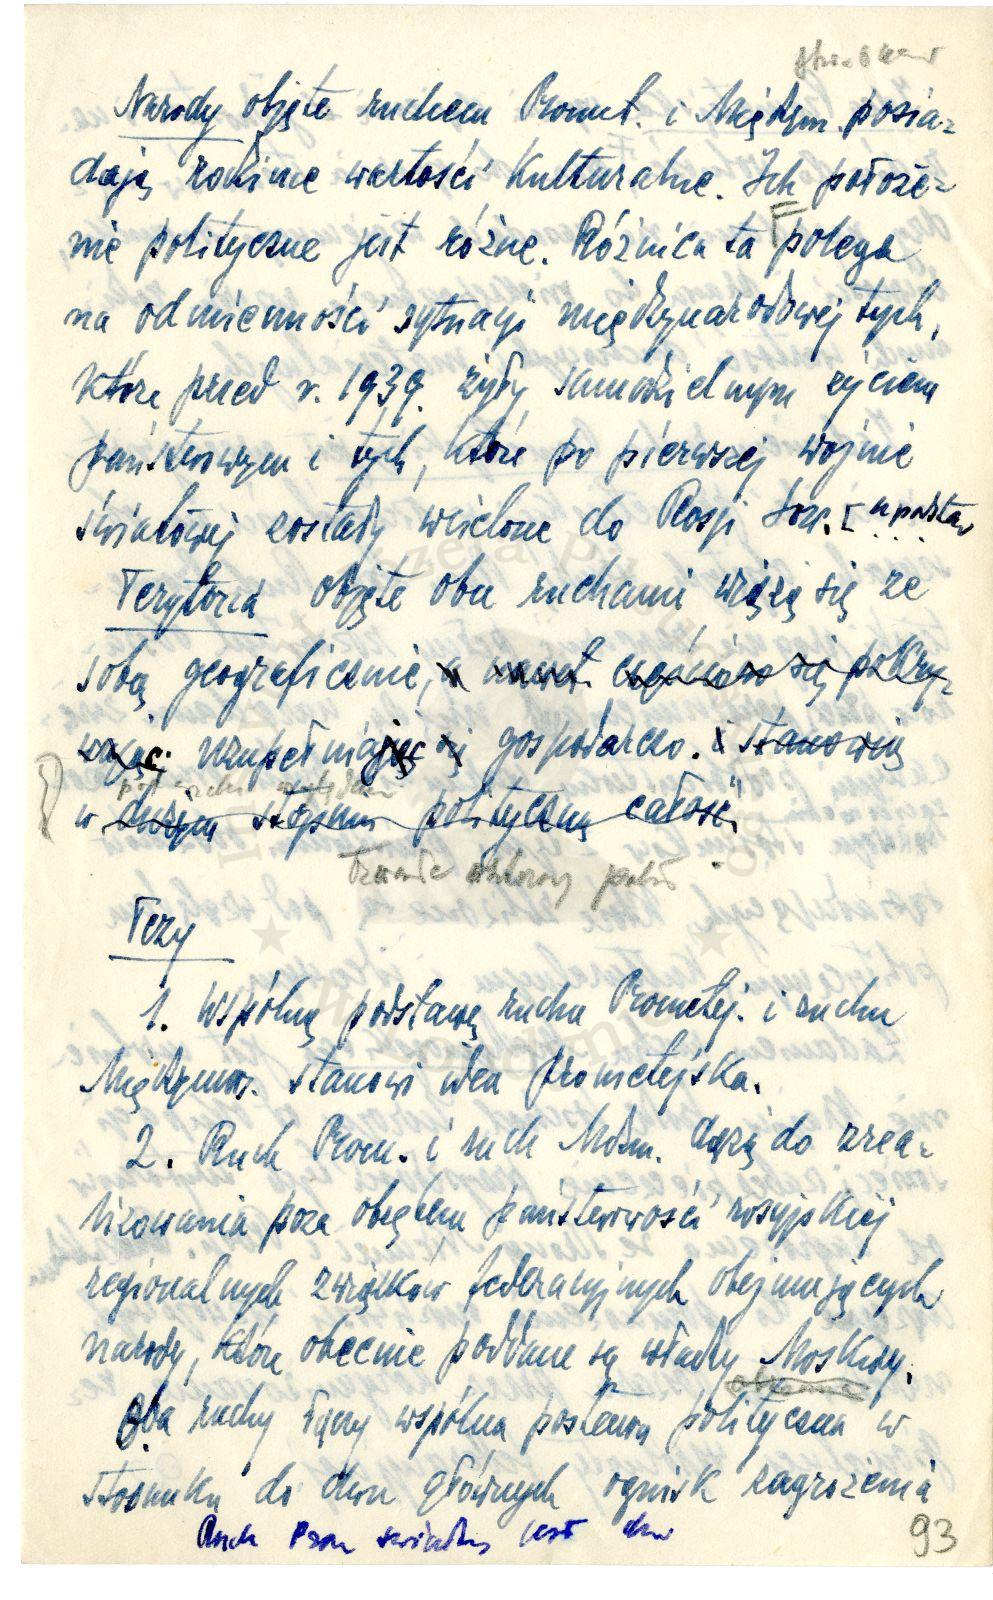 Narody objęte ruchem Promet. i Międzym. posia-
dają rodzime wartości kulturalne. Ich położe-
nie polityczne jest różne. Różnica ta polega
na odmienności sytuacji międzynarodowej tych,
które przed r. 1939. żyły samodzielnym życiem
państwowym i tych, które po pierwszej wojnie
światowej zostały wcielone do Rosji Sow. [
Terytoria objęte obu ruchami wiążą się ze
sobą geograficznie, a nawet częściowo się pokry-
wając. uzupełniając się gospodarczo. i stanowią
w dużym stopniu polityczną całość.
Tezy
1. Wspólną podstawę ruchu Prometej. i ruchu
Międzymor. stanowi idea prometejska.
2. Ruch Prom. i ruch Mdzm. dążą do zrea-
lizowania poza obrębem państwowości rosyjskiej
regionalnych związków federacyjnych obejmujących
narody, które obecnie poddane są władzy Moskwy.
Oba ruchy łączy wspólna postawa polityczna w
stosunku do dwu głównych ognisk zagrożenia
Ruch Prom jest
93